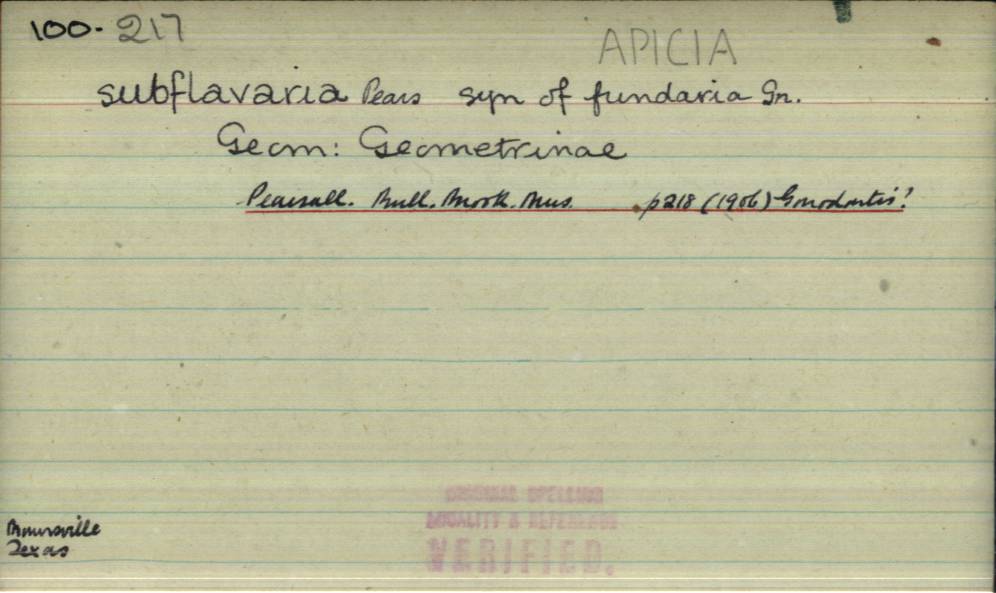 100. 217
APICIA
subflavaria Pears syn of fundaria Gn.
Geom: Geometrinae
Pearsall. Bull. Brook. Mus. p218 (1906) Gonodontis!
ORIGINAL SPELLING
LOCALITY & REFERENCE
VERIFIED.
Brownsville
Texas